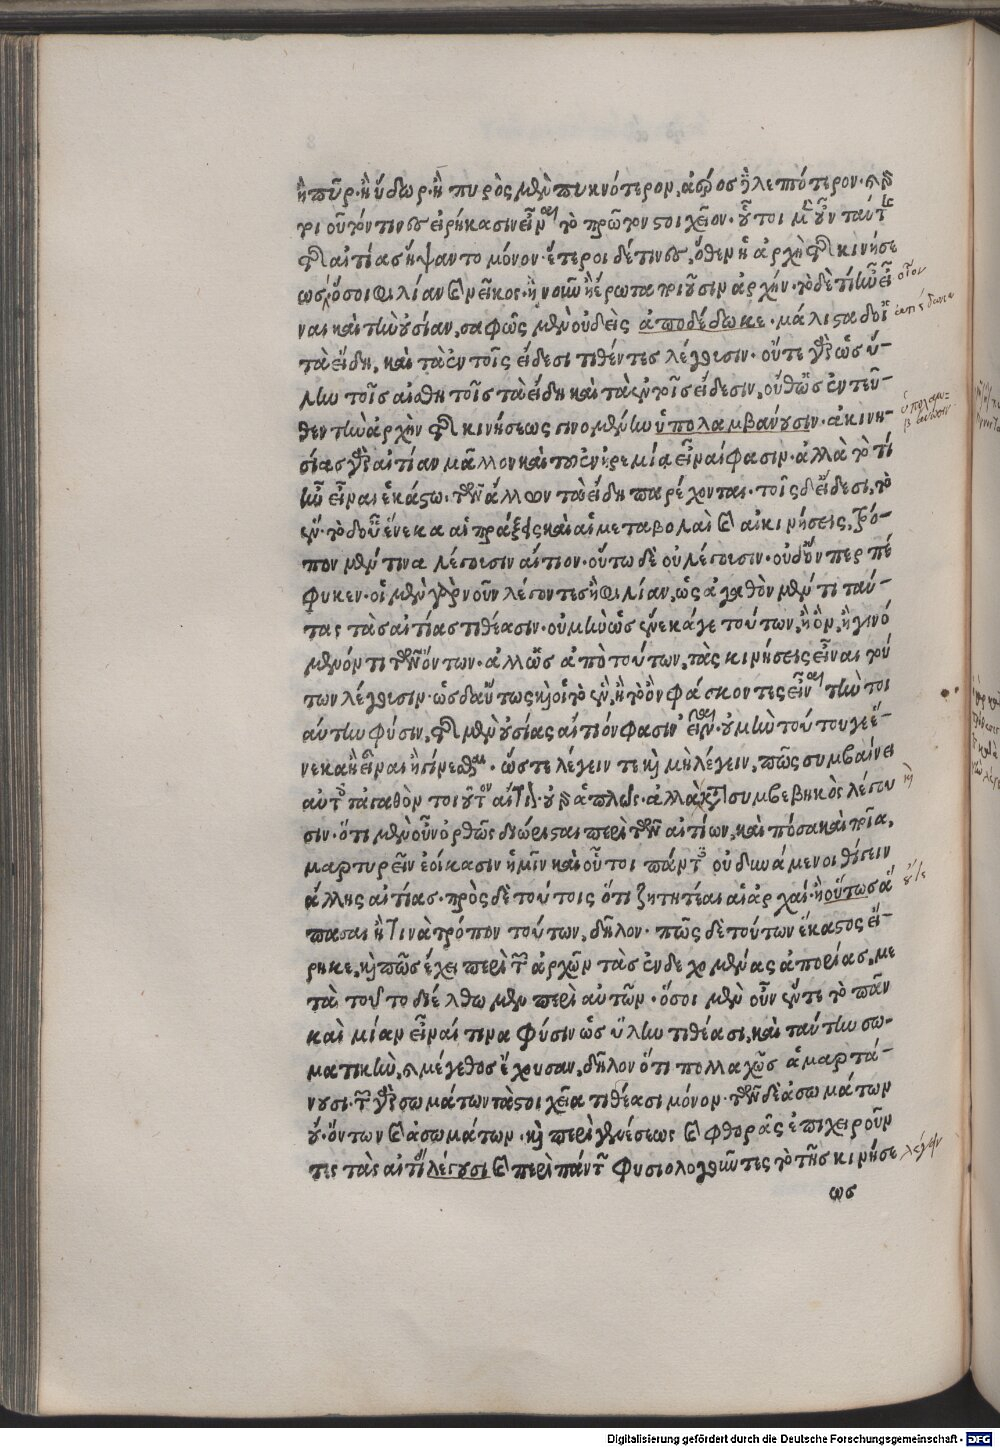 ἢ πῦρ· ἢ ὕδωρ· ἢ πυρὸς μὲν πυκνότερον, ἀέρος ἢ λεπτότερον· καὶ γὰρ
τοιοῦτόν τινες εἰρήκασιν εἶναι τὸ πρῶτον στοιχεῖον· οὗτοι μὲν οὖν ταύτης
τῆς αἰτίας ἥψαντο μόνον· ἕτεροι δέ τινες, ὅθεν ἡ ἀρχὴ τῆς κινήσε
ως, ὅσοι φιλίαν καὶ νεῖκος· ἢ νοῦν ἢ ἔρωτα ποιοῦσιν ἀρχήν· τὸ δὲ τί ἦν εἶ οἷον
ναι καὶ τὴν οὐσίαν, σαφῶς μὲν οὐδεὶς ἀποδέδωκε· μάλιστα δ' οἱ
τὰ εἴδη, καὶ τὰ ἐν τοῖς εἴδεσι τιθέντες λέγουσιν· οὔτε γὰρ ὡς ὕ-
λην τοῖς αἰσθητοῖς τὰ εἴδη καὶ τὰ ἐν τοῖς εἴδεσιν, οὔθ' ὡς ἐντεῦ-
θεν τὴν ἀρχὴν τῆς κινήσεως γινομένην ὑπολαμβάνουσιν· ἀκινη- ὑπολαμ-βάνουσιν
σίας γὰρ αἰτίαν μᾶλλον καὶ τοῦ ἐν ἠρεμίᾳ εἶναί φασιν· ἀλλὰ τὸ τί
ἦν εἶναι ἑκάστῳ· τῶν ἄλλων τὰ εἴδη παρέχονται· τοῖς δ' εἴδεσι, τὸ
ἕν· τὸ δ' οὗ ἕνεκα αἱ πράξεις καὶ αἱ μεταβολαὶ καὶ αἱ κινήσεις, τρό-
πον μέν τινα λέγουσιν αἴτιον· οὕτω δὲ οὐ λέγουσιν· οὐδ' ὅνπερ πέ
φυκεν· οἱ μὲν γὰρ νοῦν λέγοντες ἢ φιλίαν, ὡς ἀγαθὸν μέν τι ταύ-
τας τὰς αἰτίας τιθέασιν· οὐ μὴν ὡς ἕνεκά γε τούτων, ἢ ὂν, ἢ γινό
μενόν τι τῶν ὄντων· ἀλλ' ὡς ἀπὸ τούτων, τὰς κινήσεις εἶναι τού
των λέγουσιν· ὡς δ' αὔτως καὶ οἱ τὸ ἓν, ἢ τὸ ὂν φάσκοντες εἶναι τὴν τοι
αύτην φύσιν, τῆς μὲν οὐσίας αἴτιόν φασιν εἶναι· οὐ μὴν τούτου γε ἕ-
νεκα ἢ εἶναι ἢ γίνεσθαι· ὥστε λέγειν τε καὶ μὴ λέγειν, πῶς συμβαίνει
αὐτοῖς τἀγαθὸν τοιοῦτον αἴτιον· οὐ γὰρ ἁπλῶς· ἀλλὰ κατὰ συμβεβηκὸς λέγου
σιν· ὅτι μὲν οὖν ὀρθῶς διώρισται περὶ τῶν αἰτίων, καὶ πόσα καὶ ποῖα,
μαρτυρεῖν ἐοίκασιν ἡμῖν καὶ οὗτοι πάντες οὐ δυνάμενοι θίγειν
ἄλλης αἰτίας· πρὸς δὲ τούτοις ὅτι ζητητέαι αἱ ἀρχαί· ἢ οὕτως ἅ
πασαι ἢ τινὰ τρόπον τούτων, δῆλον· πῶς δὲ τούτων ἕκαστος εἴ-
ρηκε, καὶ πῶς ἔχει περὶ τῶν ἀρχῶν τὰς ἐνδεχομένας ἀπορίας, με
τὰ τοῦτο διέλθωμεν περὶ αὐτῶν· ὅσοι μὲν οὖν ἕν τε τὸ πᾶν
καὶ μίαν εἶναί τινα φύσιν ὡς ὕλην τιθέασι, καὶ ταύτην σω-
ματικὴν, καὶ μέγεθος ἔχουσαν, δῆλον ὅτι πολλαχῶς ἁμαρτά-
νουσι· τῶν γὰρ σωμάτων τὰ στοιχεῖα τιθέασι μόνον· τῶν δὲ ἀσωμάτων
οὔ· ὄντων καὶ ἀσωμάτων· καὶ περὶ γενέσεως καὶ φθορᾶς ἐπιχειροῦν
τες τὰς αἰτίας λέγουσι καὶ περὶ πάντων φυσιολογοῦντες τὸ τῆς κινήσε λέγειν
ως
Digitalisierung gefördert durch die Deutsche Forschungsgemeinschaft - DFG